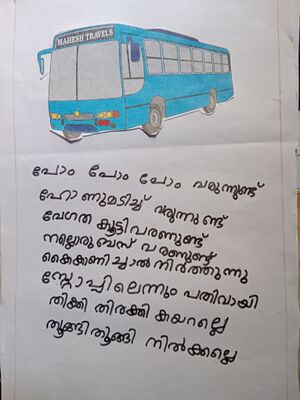 MAHESH TRAVELS
പോം പോം പോം വരുന്നുണ്ട്
ഹോണുമടിച്ച് വരുന്നുണ്ട്
വേഗത കൂട്ടി വരണുണ്ട്
നല്ലൊരു ബസ് വരണുണ്ട്
കൈകാണിച്ചാൽ നിർത്തുന്നു
സ്റ്റോപ്പിലെന്നും പതിവായി
തിക്കി തിരക്കി കയറല്ലെ
തൂങ്ങി തൂങ്ങി നിൽക്കല്ലെ